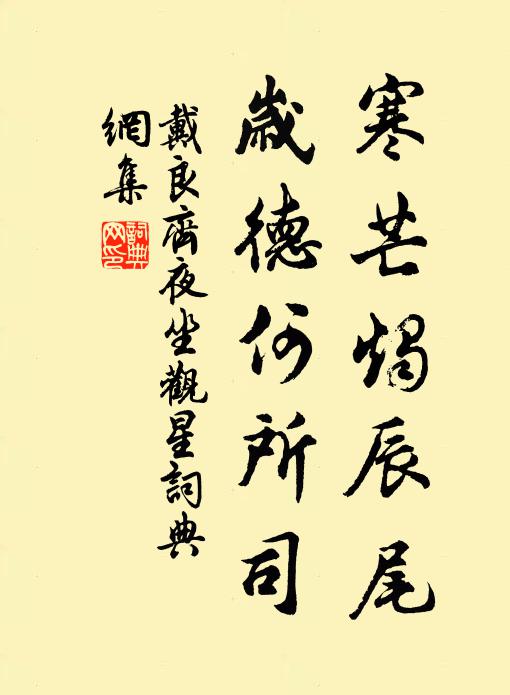 寒芒燭辰尾
歲德何所司
戴良齊夜坐觀星詞典
網集
詞典網印